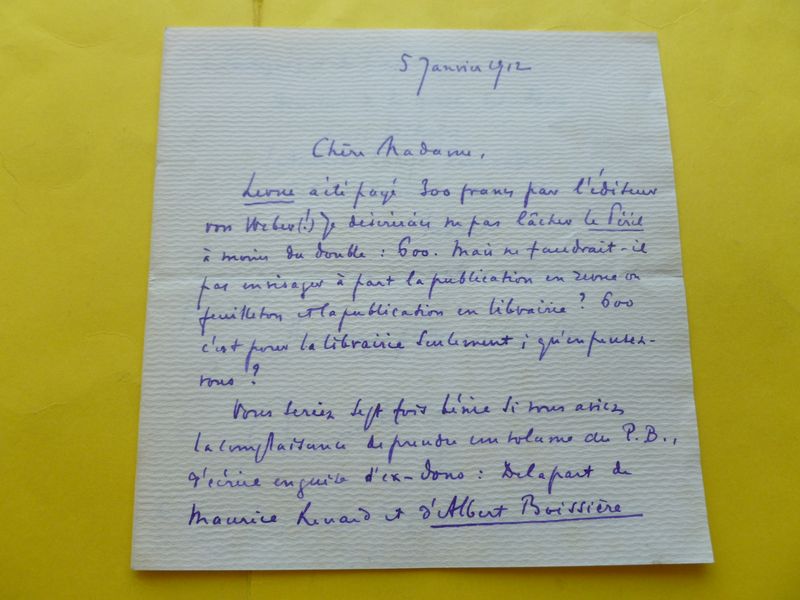 5 Janvier 1912
Chère Madame,
Lerne a été payé 300 francs par l'éditeur
von Weber(!) Je désirerais ne pas lâcher le Péril
à moins du double : 600. Mais ne faudrait-il
pas envisager à part la publication en revue ou
feuilleton et la publication en librairie ? 600
c'est pour la librairie seulement ; qu'en pensez-
vous ?
Vous seriez sept fois bénie si vous aviez
la complaisance de prendre un volume du P.B.,
d'écrire en guise d'ex-dono : De la part de
Maurice Renard et d'Albert Boissière